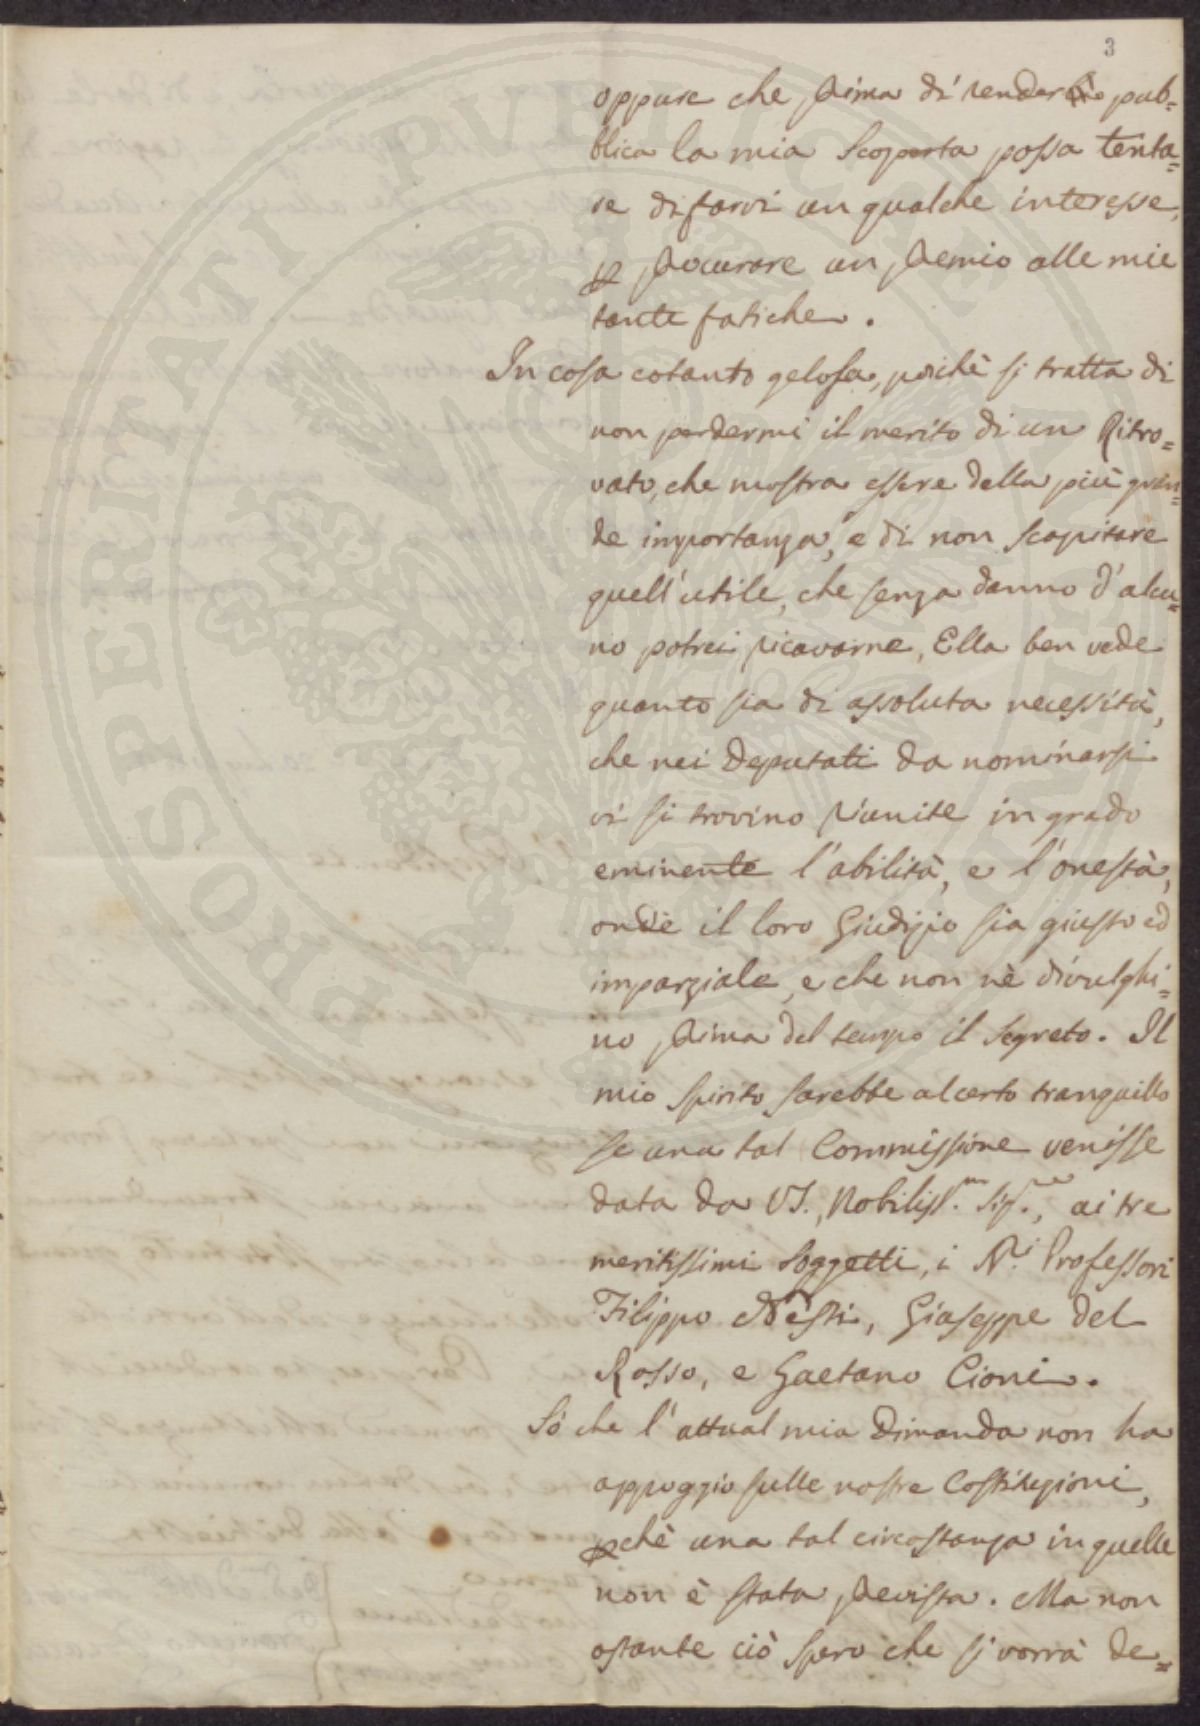 3
oppure che prima di render pub=
blica la mia Scoperta possa tenta=
re di farvi un qualche interesse,
p procurare un premio alle mie
tante fatiche.
In cosa cotanto gelosa, poichè si tratta di
non perdermi il merito di un Ritro=
vato, che mostra essere della più gran=
de importanza, e di non scapitare
quell'utile, che senza danno d'alcu=
no potrei ricavarne, Ella ben vede
quanto sia di assoluta necessità,
che nei Deputati da nominarsi
vi si trovino riunite in grado
eminente l'abilità, e l'onestà,
onde il loro Giudizio sia giusto ed
imparziale, e che non nè divulghi=
no prima del tempo il Segreto. Il
mio spirito sarebbe al certo tranquillo
se una tal Commissione venisse
data da VS., Nobiliss.m Sig.re, ai tre
meritissimi Soggetti, i N.i Professori
Filippo Nesti, Giuseppe del
Rosso, e Gaetano Cioni.
Sò che l'attual mia Dimanda non ha
appoggio sulle nostre Costituzioni,
pchè una tal circostanza in quelle
non è stata prevista. Ma non
ostante ciò spero che si vorrà de=
PROSPERITATI PUBLICAE